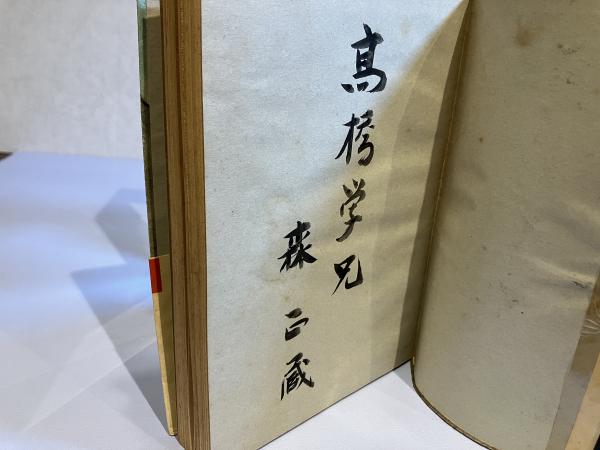 髙橋学兄
森正蔵